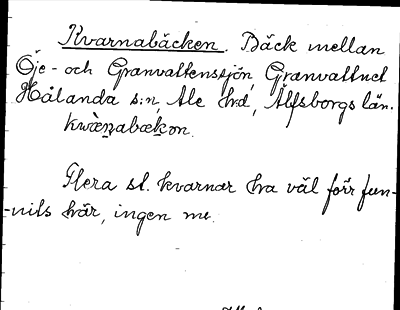 Kvarnabäcken. Bäck mellan
Öje- och Granvattenssjön, Granvattnet
Hålanda s:n, Ale hd, Älfsborgs län.
kwàṉabæḵon.
Flera st. kvarnar ha väl förr fun-
-nits här, ingen nu.